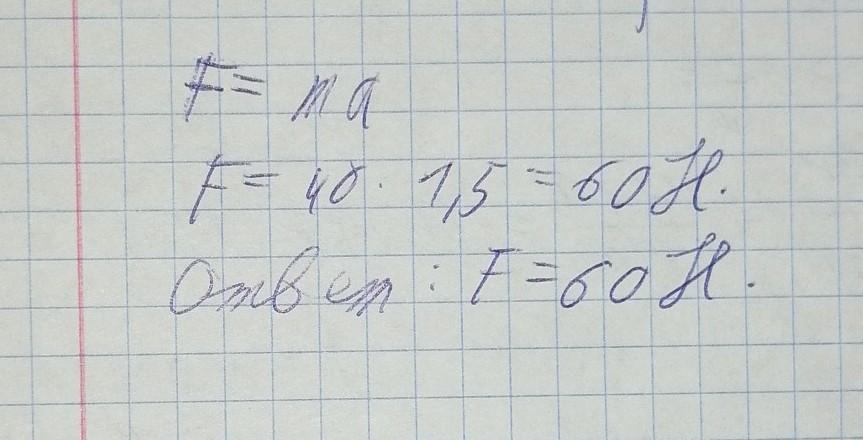 F = ma
F = 40 · 1,5 = 60 Н.
Ответ : F = 60 Н.